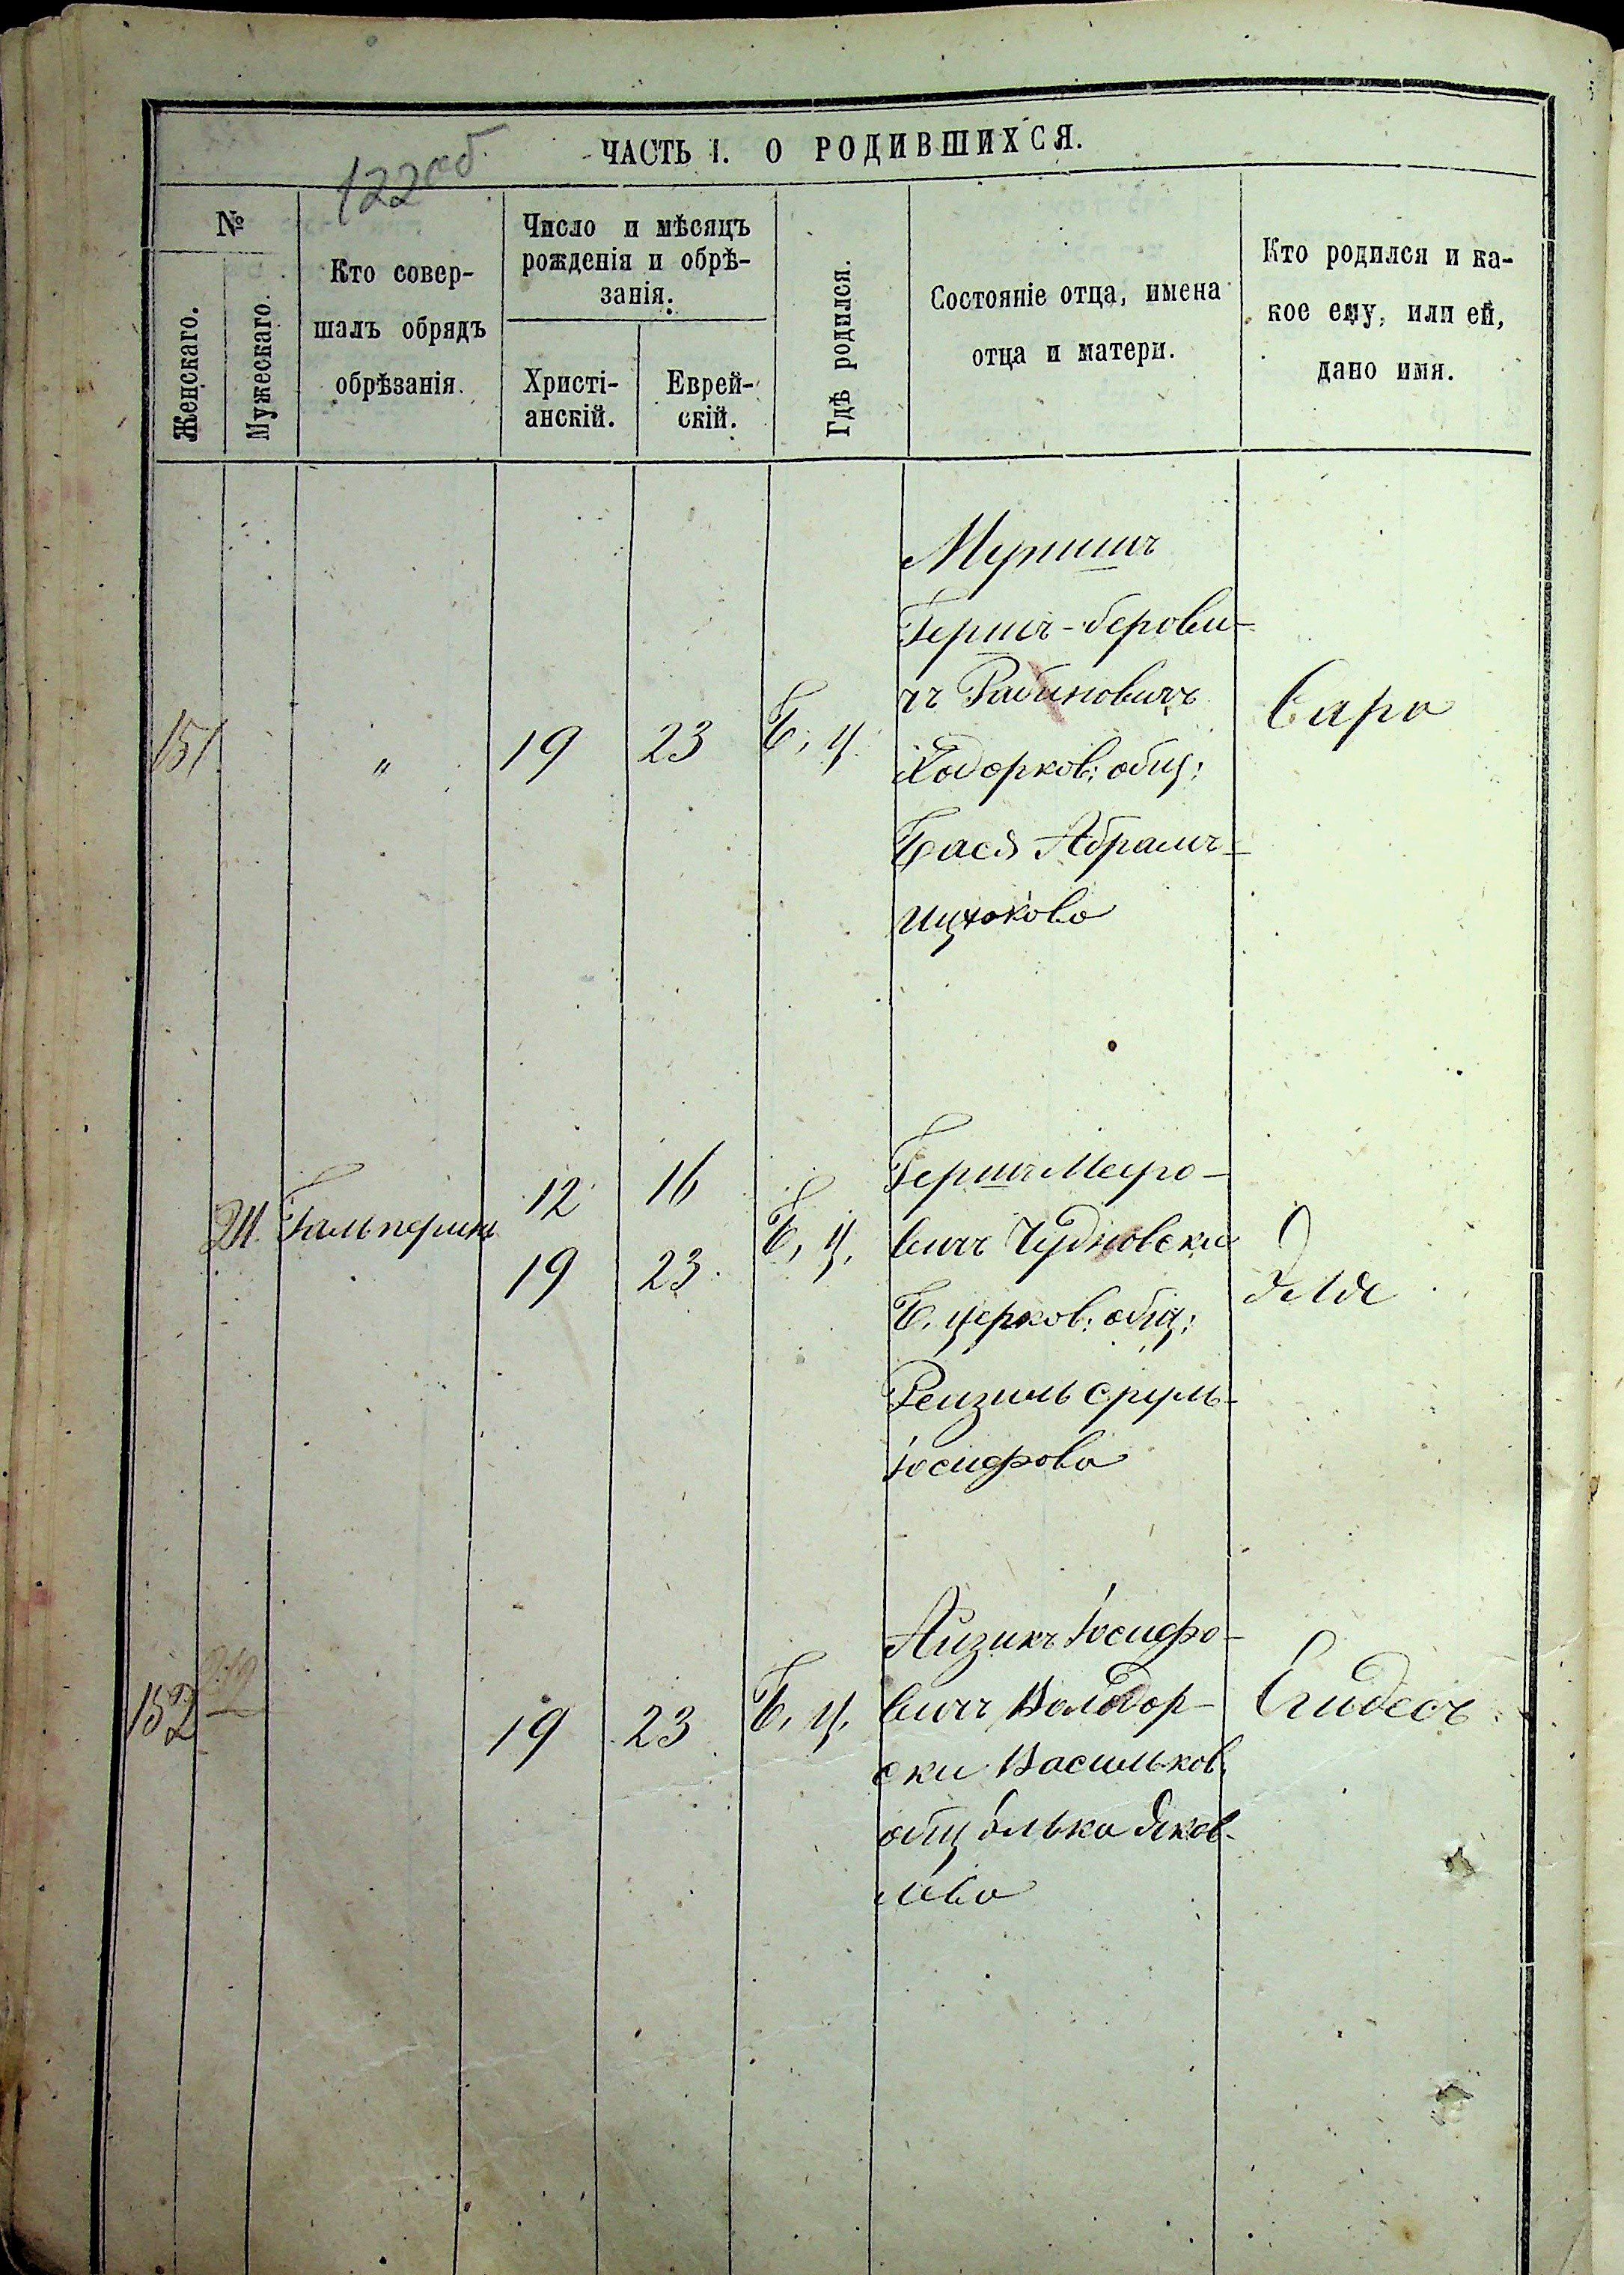 ЧАСТЬ I. О РОДИВШИХСЯ.
122 об.
№
Женскаго.
Мужескаго.
Кто совер-
шалъ обрядъ
обрѣзанія.
Число и мѣсяцъ
рожденія и обрѣ-
занія.
Христі-
анскій.
Еврей-
скій.
Гдѣ родился.
Состояніе отца, имена
отца и матери.
Кто родился и ка-
кое ему, или ей,
дано имя.
151
"
19
23
Б. ц.
Гершъ-берови-
чъ Рабиновичъ
Ходорков: общ:
Бася Абрамъ-
ицкокова
Сара
Гальперинъ
12
16
19
23
Б. ц.
Гершъ Меєро-
вичъ Чудновски
Б. церков: общ:
Рейзиль сруль-
Іосифова
Эля
152
19
23
Б. ц.
Айзикъ Іосифо-
вичъ Володор-
ски Васильков.
общ Элька Яков-
лева
Енидесъ